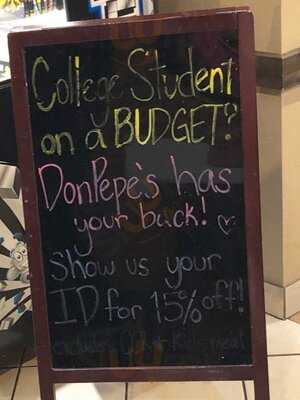 College Student
on a BUDGET?
DonPepe's has
your back! ♡
Show us your
ID for 15% off!
excludes Kids meal